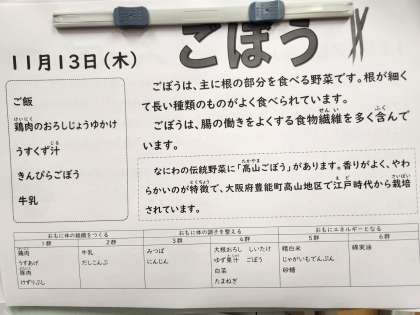 ごぼう
11月13日(木)
ご飯
鶏肉のおろしじょうゆかけ
うすくず汁
きんぴらごぼう
牛乳
ごぼうは、主に根の部分を食べる野菜です。根が細く
て長い種類のものがよく食べられています。
ごぼうは、腸の働きをよくする食物繊維を多く含んで
います。
なにわの伝統野菜に「高山ごぼう」があります。香りがよく、やわ
らかいのが特徴で、大阪府豊能町高山地区で江戸時代から栽培
されています。
おもに体の組織をつくる おもに体の調子を整える おもにエネルギーとなる
1群 2群 3群 4群 5群 6群
鶏肉 牛乳 みつば 大根おろし しいたけ 精白米 綿実油
うすあげ だしこんぶ にんじん ゆず果汁 ごぼう じゃがいもでんぷん
豚肉 白菜 砂糖
けずりぶし たまねぎ